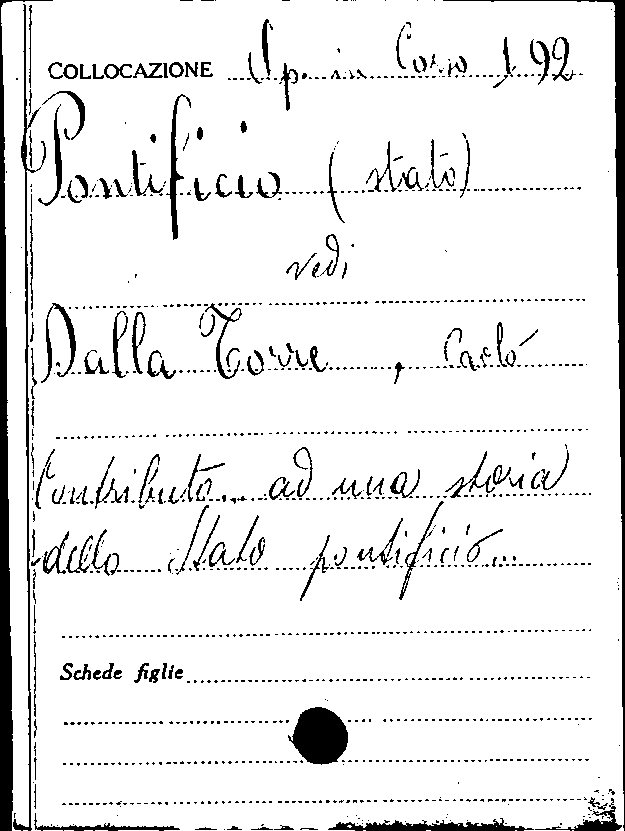 COLLOCAZIONE Op. in Corso 192
Pontificio (stato)
vedi
Dalla Torre, Carlo
Contributo... ad una storia
dello Stato pontificio...
Schede figlie